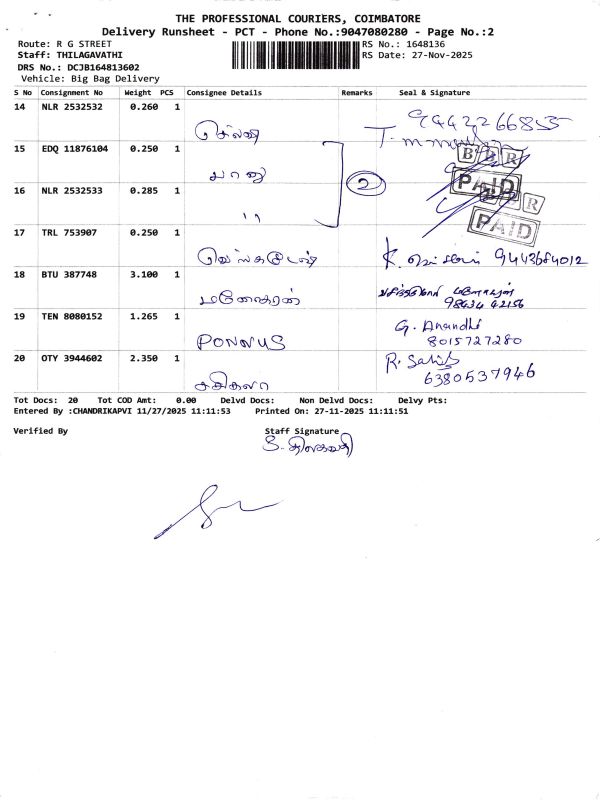 THE PROFESSIONAL COURIERS, COIMBATORE
Delivery Runsheet - PCT - Phone No.:9047080280 - Page No.:2
Route: R G STREET
Staff: THILAGAVATHI
DRS No.: DCJB164813602
Vehicle: Big Bag Delivery
RS No.: 1648136
RS Date: 27-Nov-2025
S No Consignment No Weight PCS Consignee Details Remarks Seal & Signature
14 NLR 2532532 0.260 1
செல்வி
9442266855
15 EDQ 11876104 0.250 1
பானு
BBR
PAID
16 NLR 2532533 0.285 1
" 2
BBR
PAID
17 TRL 753907 0.250 1
K. 9443684012
18 BTU 387748 3.100 1
மனோகரன்
98434 42156
19 TEN 8080152 1.265 1
PONNUS
G. Anandhi
8015727280
20 OTY 3944602 2.350 1
சசிகலா
R.
6380537946
Tot Docs: 20 Tot COD Amt: 0.00 Delvd Docs: Non Delvd Docs: Delvy Pts:
Entered By :CHANDRIKAPVI 11/27/2025 11:11:53 Printed On: 27-11-2025 11:11:51
Verified By Staff Signature
S. திலகவதி